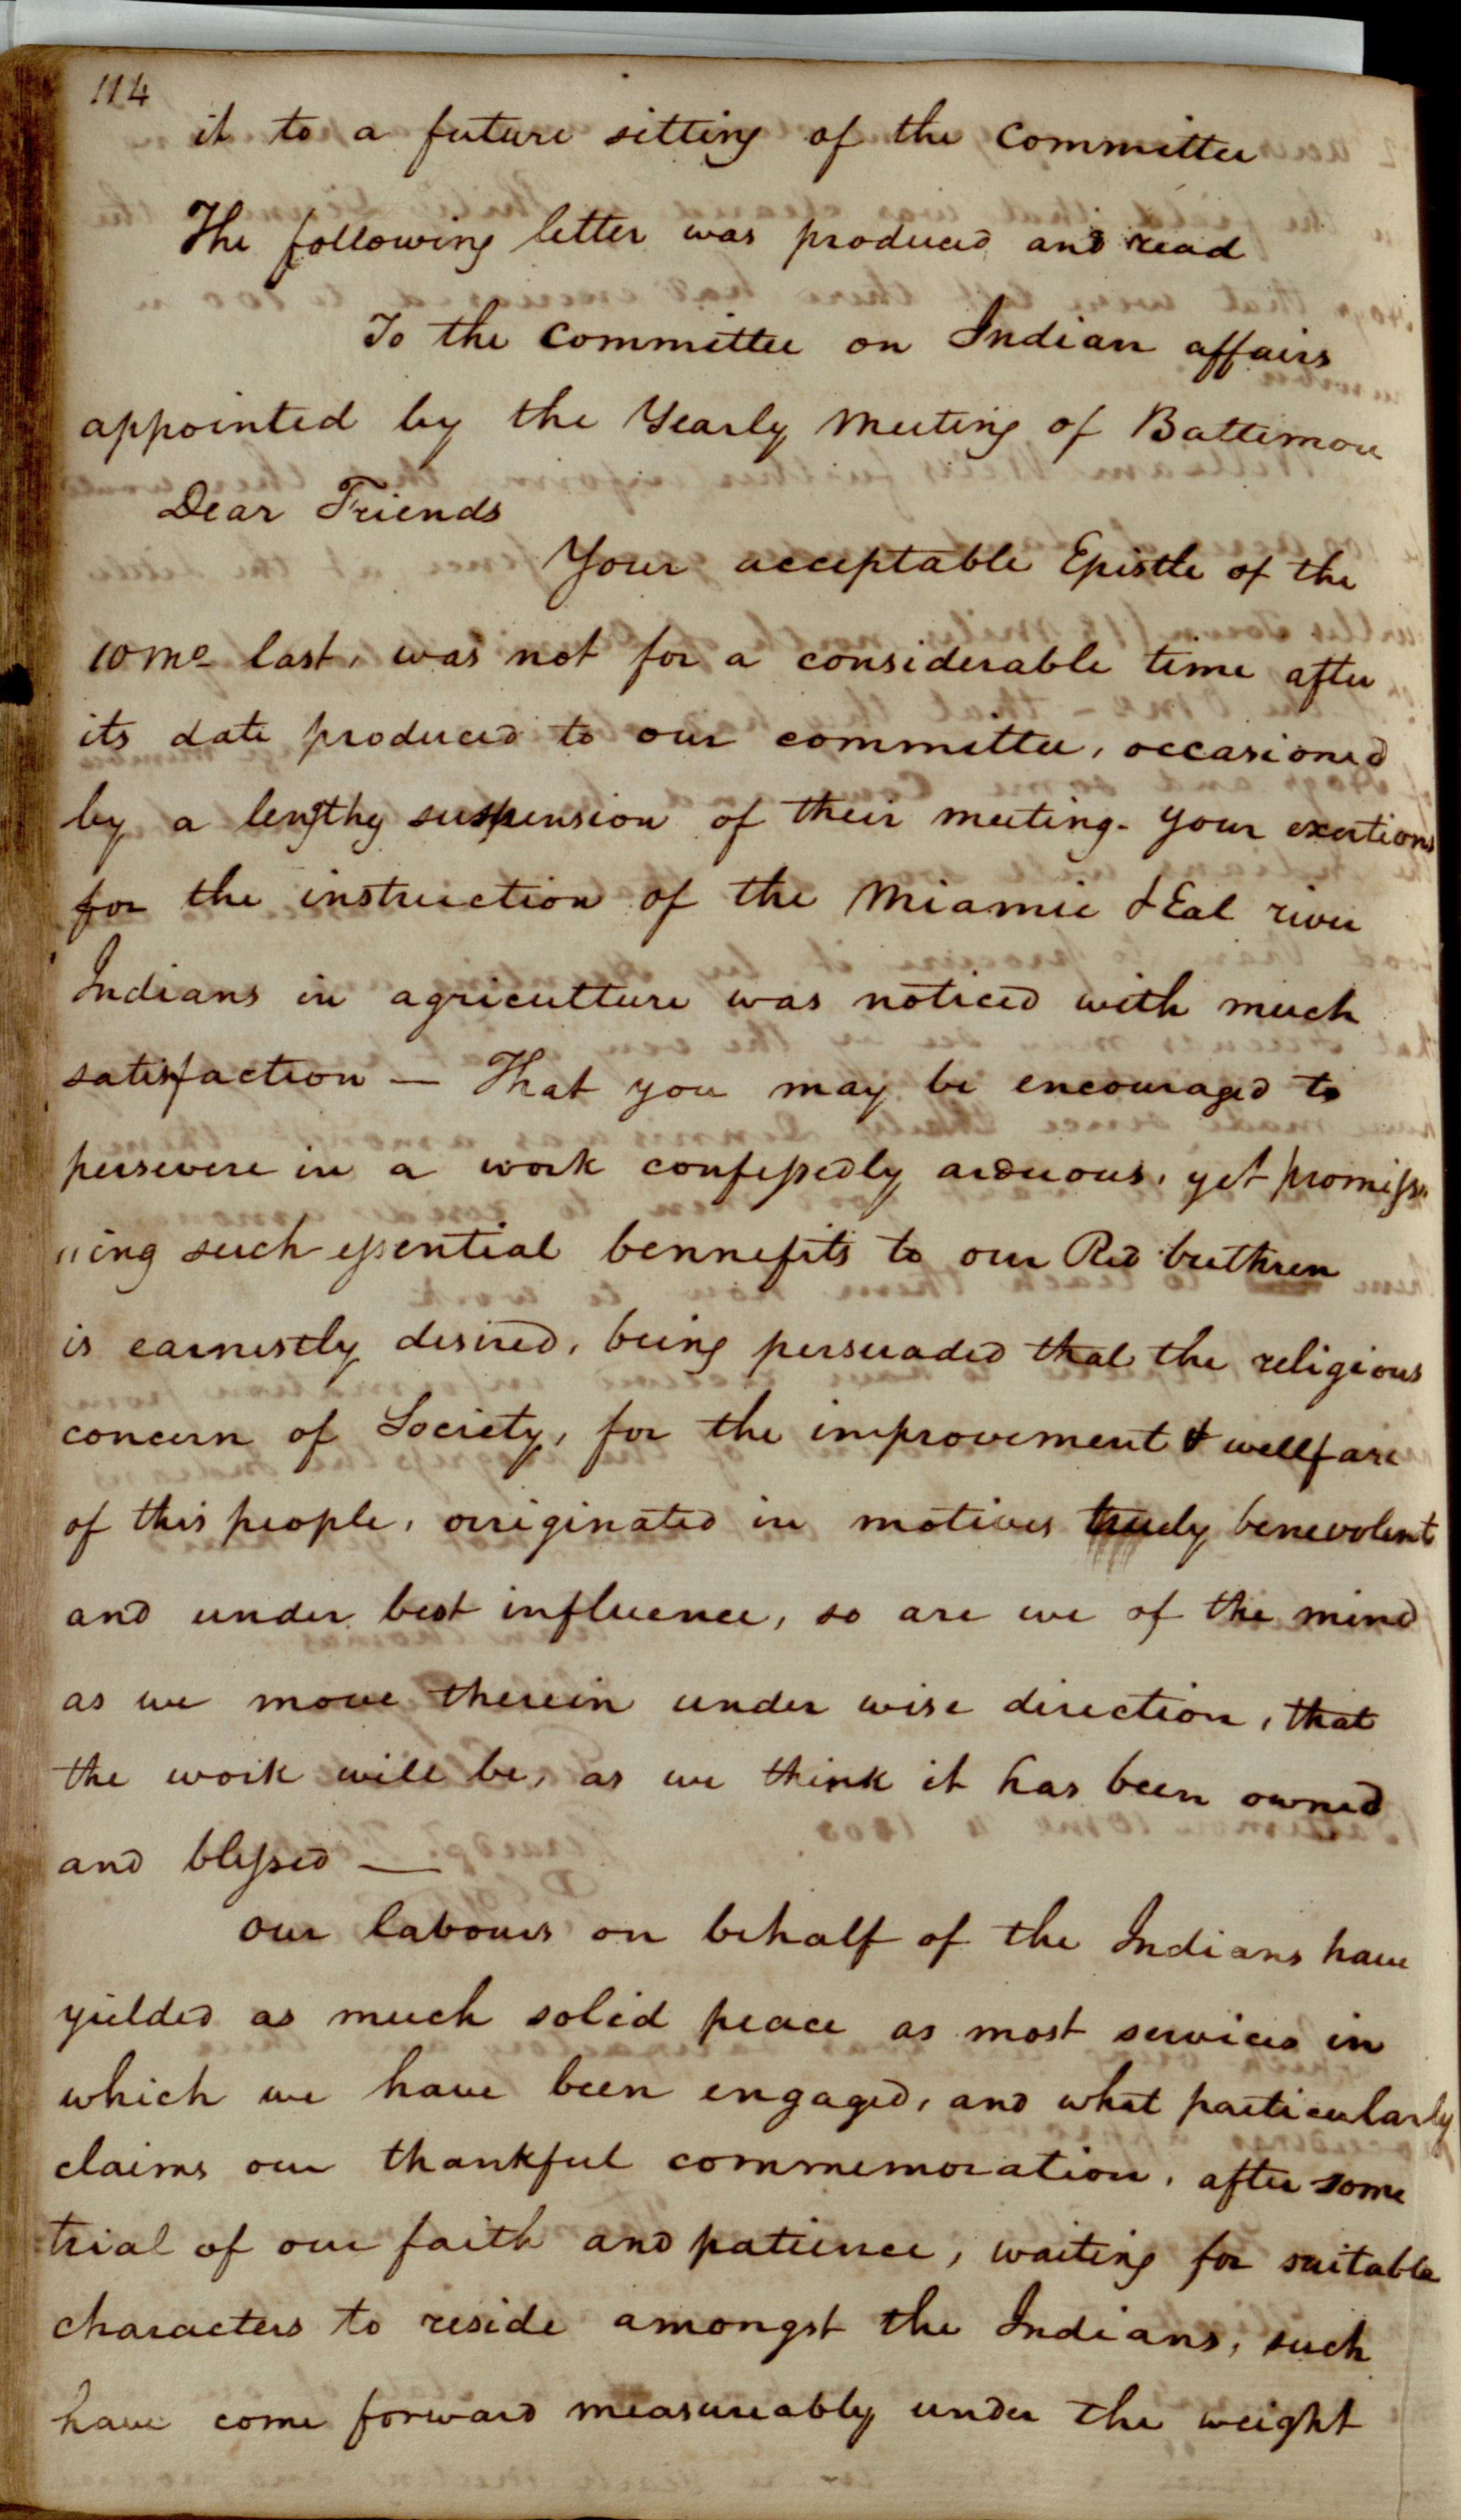 114
it to a future sitting of the Committee
The following letter was produced and read
To the Committee on Indian affairs
appointed by the Yearly Meeting of Baltimore
Dear Friends
Your acceptable Epistle of the
10 mo last, was not for a considerable time after
its date produced to our committee, occasioned
by a lengthy suspension of their meeting. Your exertions
for the instruction of the Miamie & Eal river
Indians in agriculture was noticed with much
satisfaction — That you may be encouraged to
persevere in a work confessedly arduous, yet promiss-
"ing such essential bennefits to our Red brethren
is earnestly desired, being persuaded that the religious
concern of Society, for the improvement & wellfare
of this people, orriginated in motives truely benevolent
and under best influence, so are we of the mind
as we move therein under wise direction, that
the work will be, as we think it has been owned
and blessed —
Our labours on behalf of the Indians have
yielded as much solid peace as most services in
which we have been engaged, and what particularly
claims our thankful commemoration, after some
trial of our faith and patience, waiting for suitable
characters to reside amongst the Indians, such
have come forward measureably under the weight